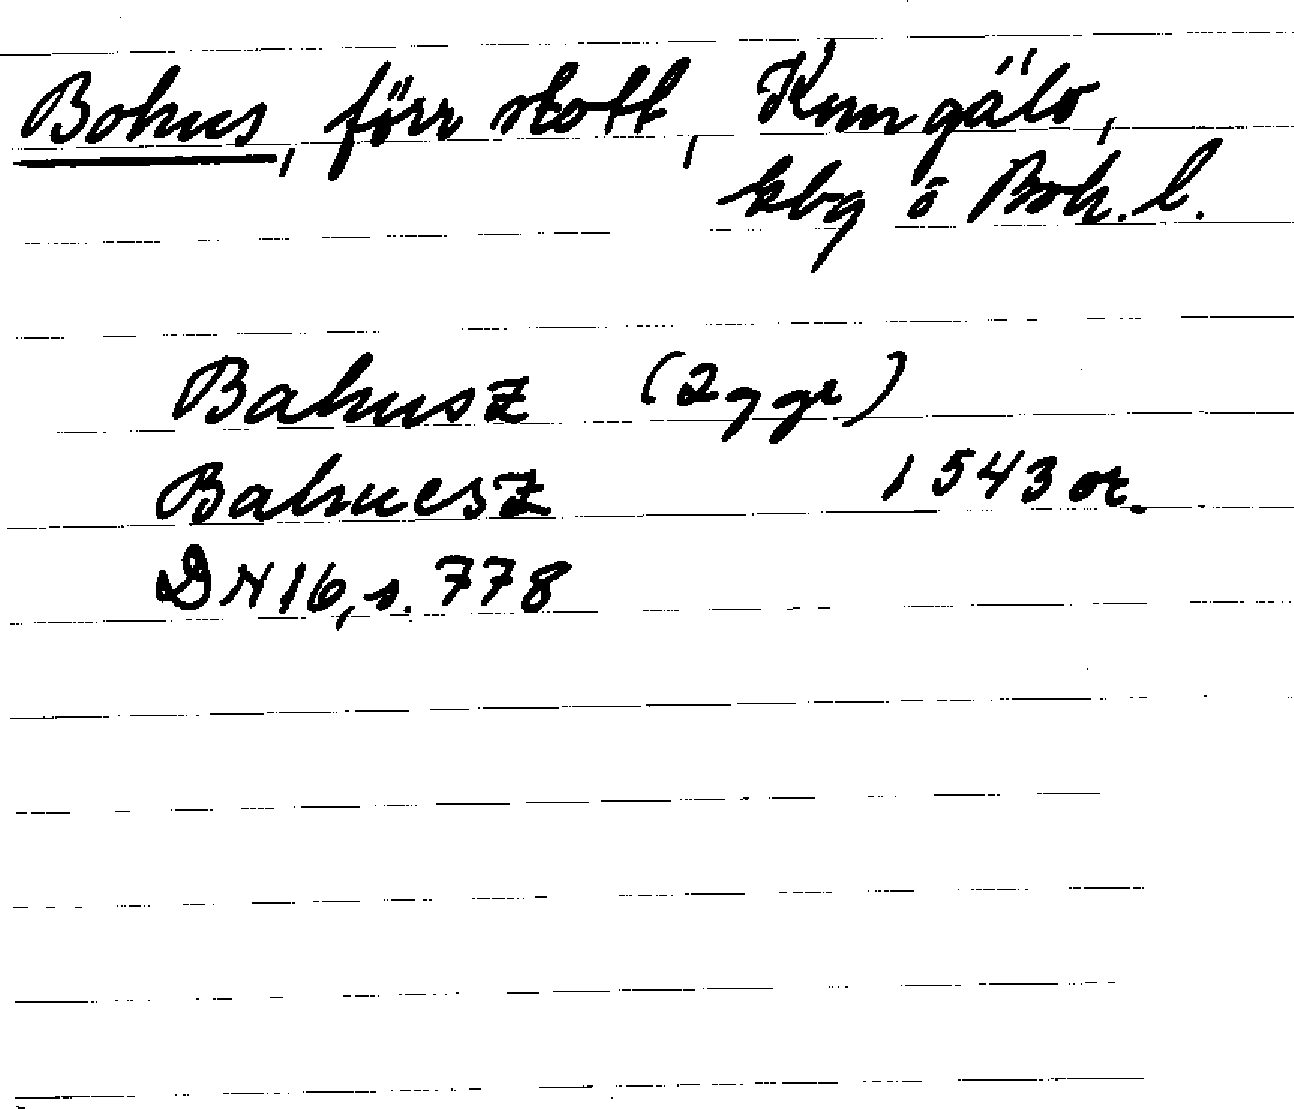 Bohus, förr slott, Kungälv,
kbg o Boh. l.
Bahusz (2 ggr)
Bahuesz 1543 or.
DN 16, s. 778